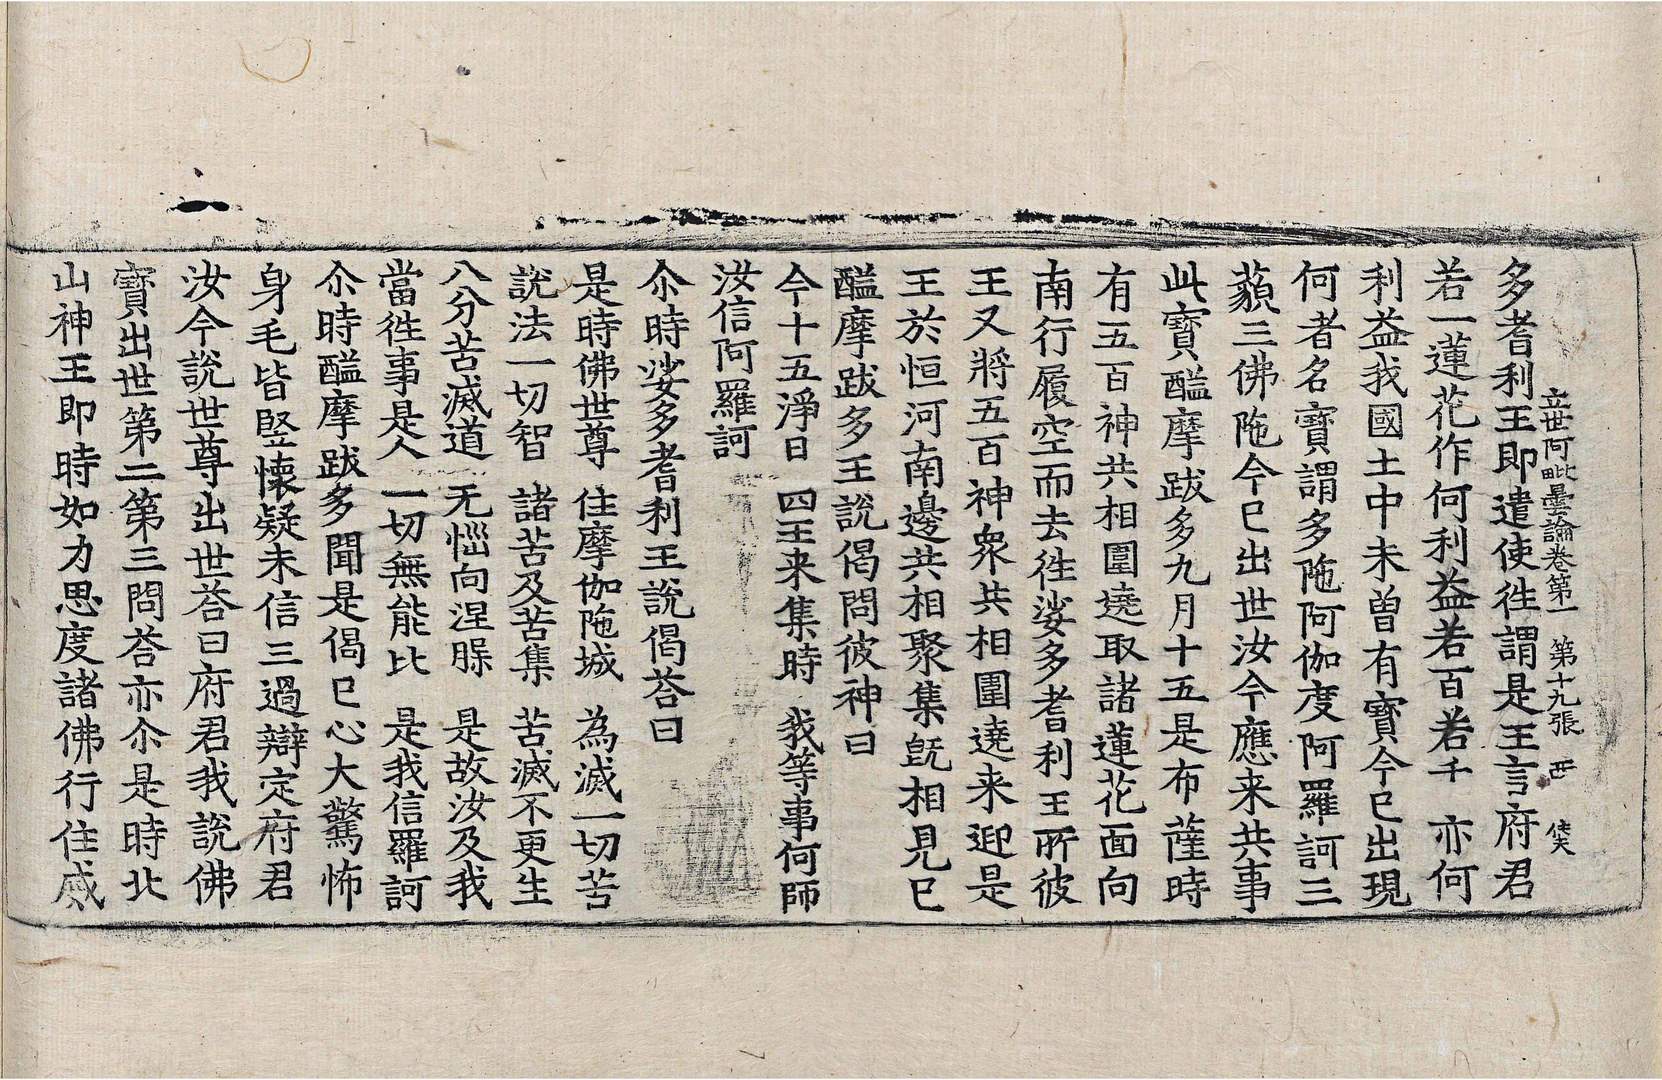 立世阿毗曇論卷第一　第十九張　西
多耆利王即遣使徃謂是王言府君
若一蓮花作何利益若百若千亦何
利益我國土中未曾有寳今已出現
何者名寳謂多陁阿伽度阿羅訶三
藐三佛陁今已出世汝今應来共事
此寳醯摩跋多九月十五是布薩時
有五百神共相圍遶取諸蓮花面向
南行履空而去徃娑多耆利王所彼
王又將五百神衆共相圍遶来迎是
王於恒河南邊共相聚集既相見已
醯摩跋多王說偈問彼神曰
今十五淨日　四王来集時　我等事何師
汝信阿羅訶
尒時娑多耆利王說偈荅曰
是時佛世尊　住摩伽陁城　為滅一切苦
說法一切智　諸苦及苦集　苦滅不更生
八分苦滅道　无惱向涅槃　是故汝及我
當徃事是人　一切無能比　是我信羅訶
尒時醯摩跋多聞是偈已心大驚怖
身毛皆竪懷疑未信三過辯定府君
汝今說世尊出世荅曰府君我說佛
寳出世第二第三問荅亦尒是時北
山神王即時如力思度諸佛行住威